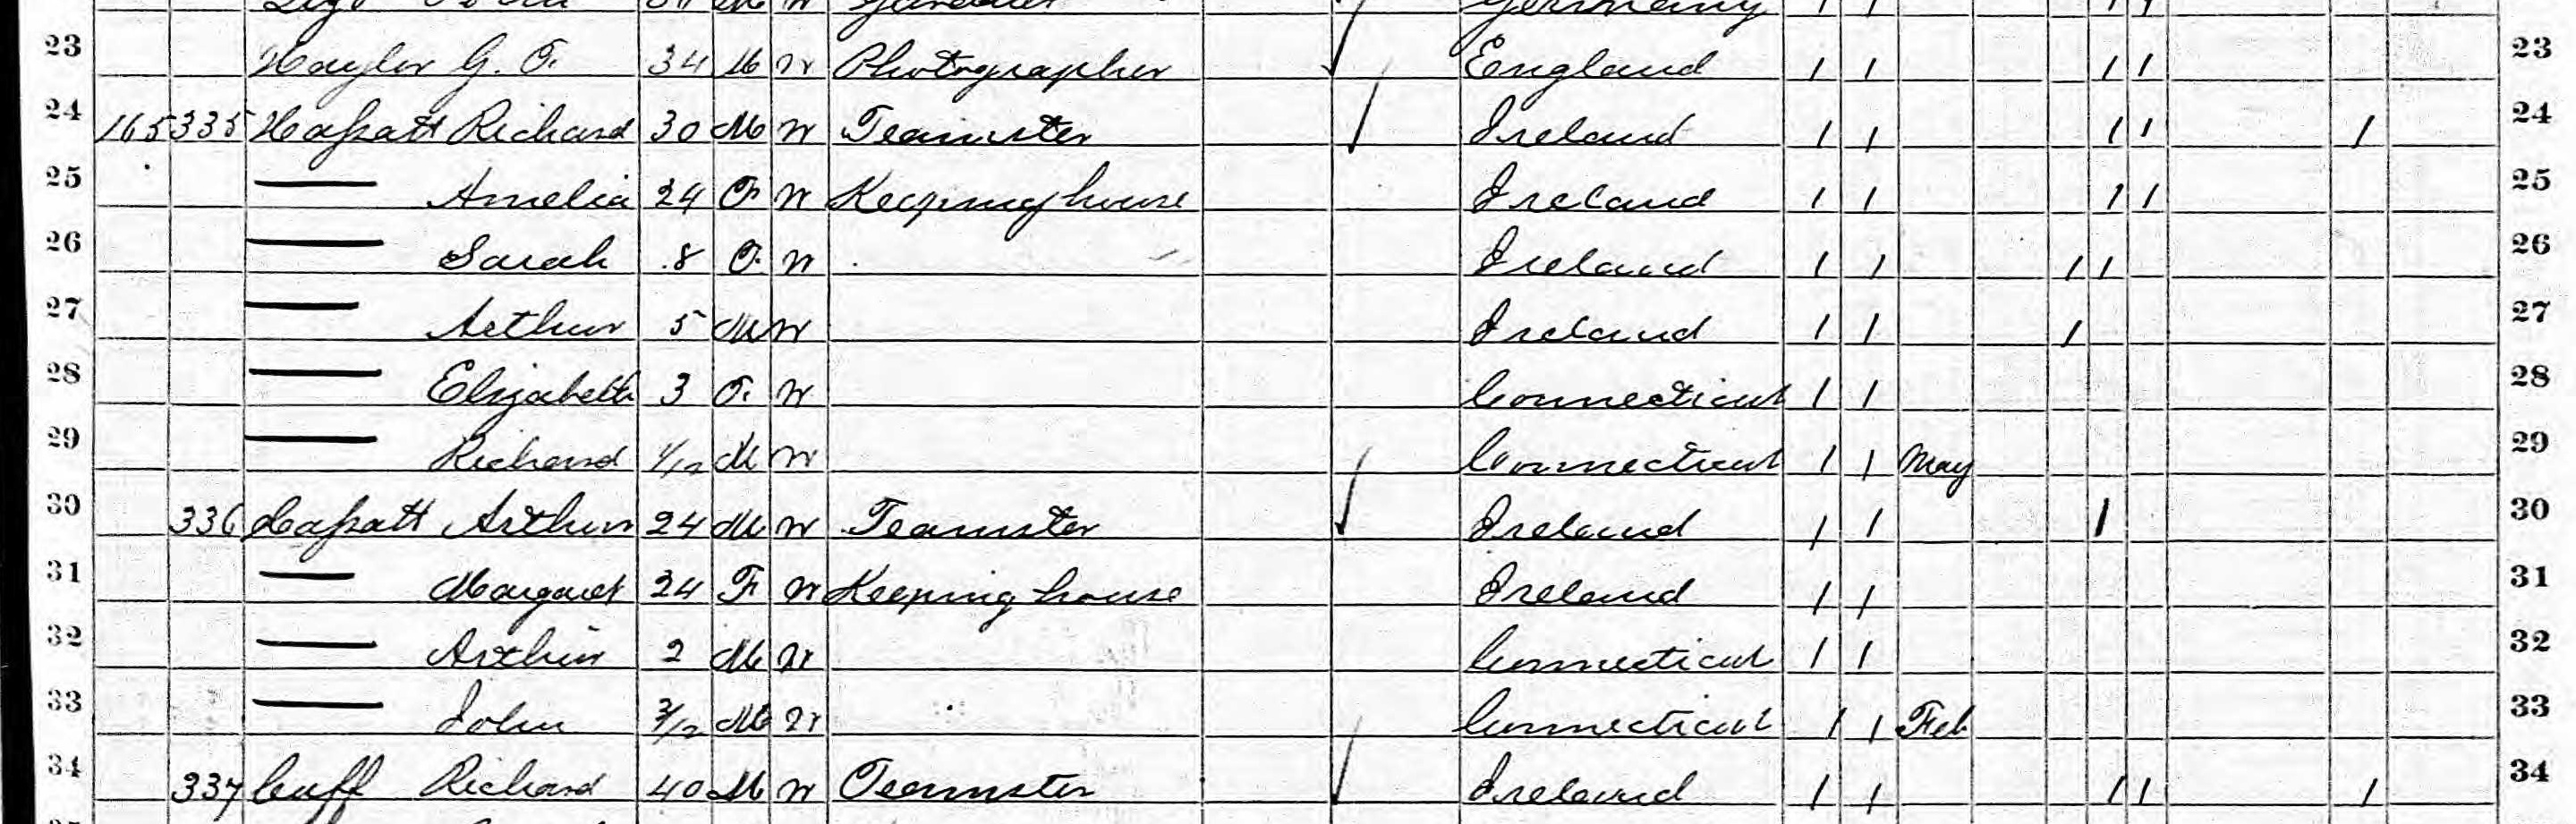 23 Naylor G. F. 34 M W Photographer England 1 1 1 1 23
24 165 335 Hassatt Richard 30 M W Teamster Ireland 1 1 1 1 1 24
25 Amelia 24 F W Keeping house Ireland 1 1 1 1 25
26 Sarah 8 F W Ireland 1 1 1 1 26
27 Arthur 5 M W Ireland 1 1 1 27
28 Elizabeth 3 F W Connecticut 1 1 28
29 Richard 1/12 M W Connecticut 1 1 May 29
30 336 Hassatt Arthur 24 M W Teamster Ireland 1 1 1 30
31 Margaret 24 F W Keeping house Ireland 1 1 31
32 Arthur 2 M W Connecticut 1 1 32
33 John 3/12 M W Connecticut 1 1 Feb 33
34 337 Cuff Richard 40 M W Teamster Ireland 1 1 1 1 1 34